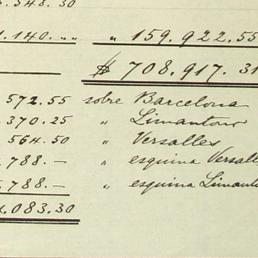 3.548.30
1.140. „ „ „ 159.922.55
$ 708.917.31
572.55 sobre Barcelona
370.25 „ Limantour
564.50 „ Versalles
788.- „ esquina Versalle
788.- „ esquina Limanto
1.083.30